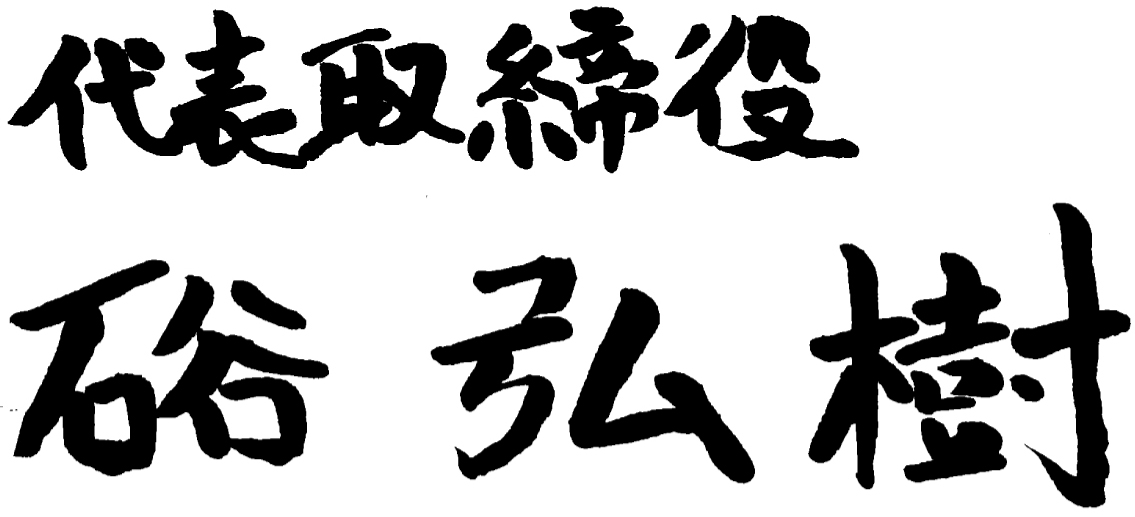 代表取締役
硲 弘樹